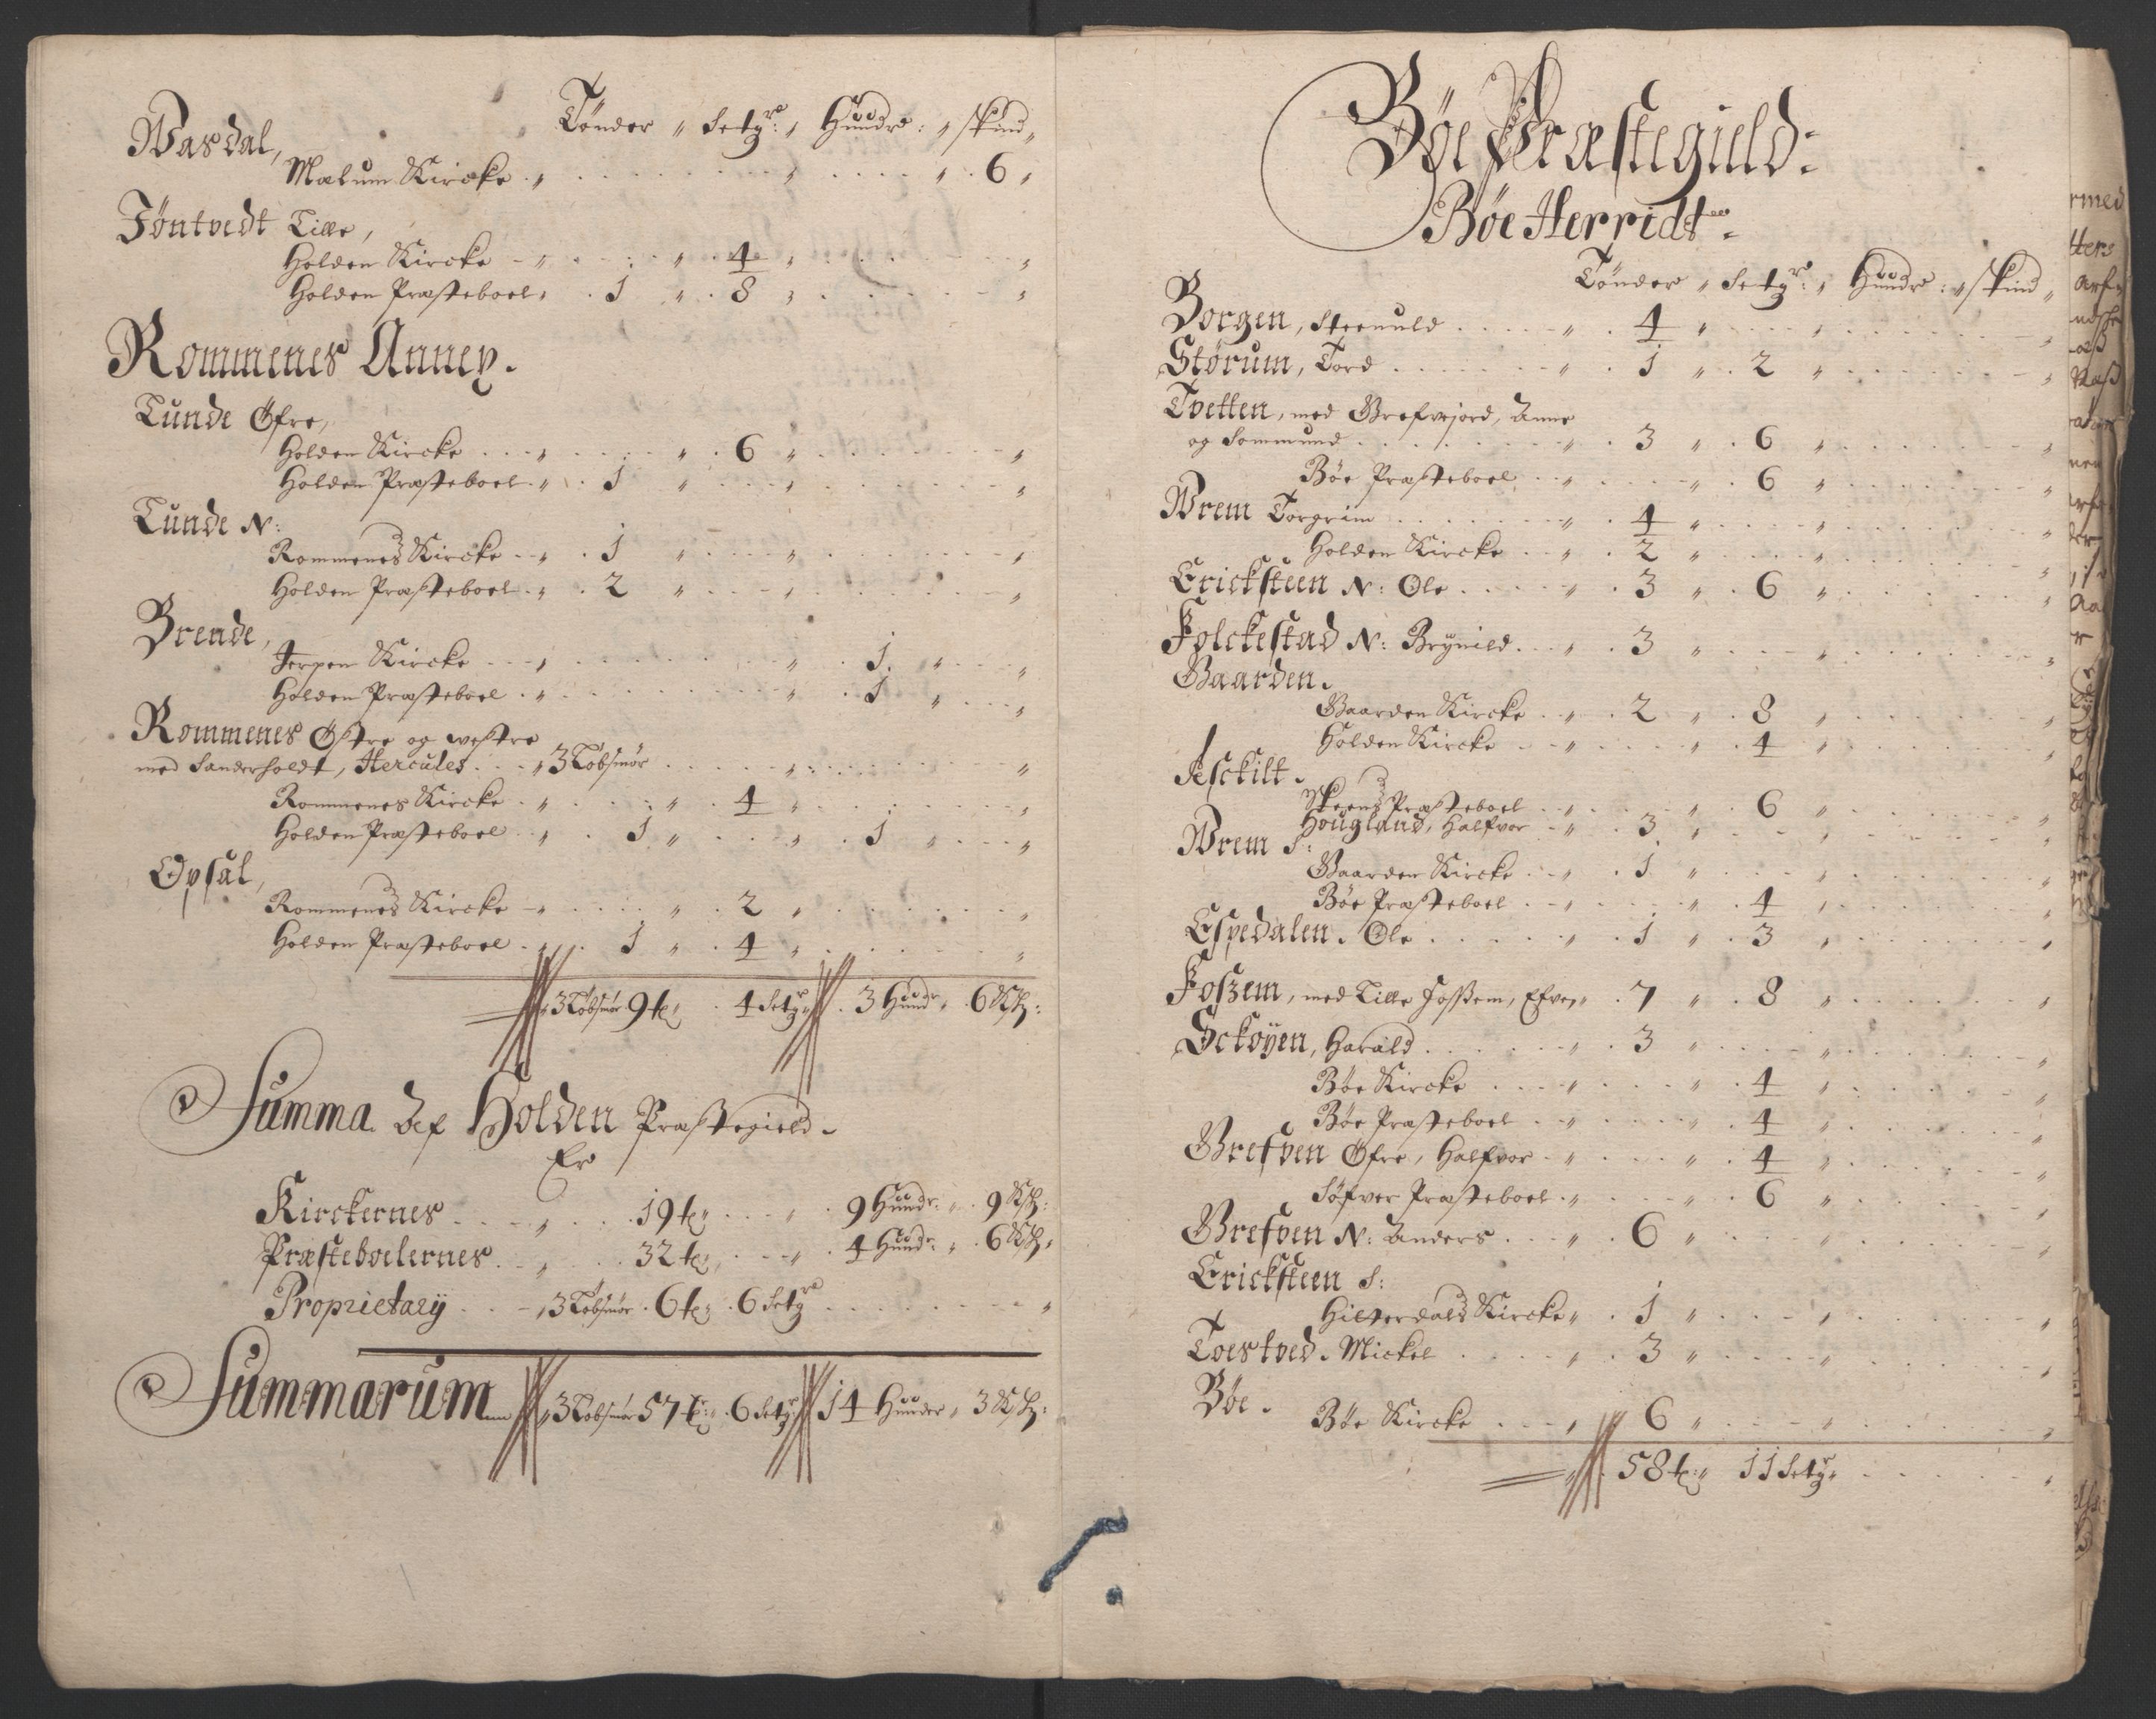 Tønder „ Setgr: „ Hundr: „ skind „
Wasdal,
Mælum Kircke „ 6 „
Jøntvedt Lille,
Holden Kircke „ 4 „
Holden Præsteboel „ 1 „ 8 „
Rommenes Annex.
Lunde Øfre,
Holden Kircke „ 6 „
Holden Præsteboel „ 1 „
Lunde N:
Rommenes Kircke „ 1 „
Holden Præsteboel „ 2 „
Brende,
Jerpen Kircke „ 1 „
Holden Præsteboel „ 1 „
Rommenes Østre og westre
med Sanderholdt, Hercules „ 3 Løbsmør „
Rommenes Kircke „ 4 „
Holden Præsteboel „ 1 „ 1 „
Opsal,
Rommenes Kircke „ 2 „
Holden Præsteboel „ 1 „ 4 „
3 Løbsmør 9 t: 4 Setgr „ 3 Hundr „ 6 Sk:
Summa Af Holden Præstegield.
Er
Kirckernes „ 19 t: „ 9 Hundr: „ 9 Sk:
Præsteboelernes „ 32 t: „ 4 Hundr: „ 6 Sk:
Proprietarÿ „ 3 Løbsmør 6 t: 6 Setgr „
Summarum 3 Løbsmør 57 t: 6 Setgr 14 Hunder „ 3 Sk:
Bøe Præstegield:
Bøe Herridt
Tønder „ Setgr: „ Hundr: „ skind „
Borgen, Steenuld „ 4 „
Størum, Tord „ 1 „ 2 „
Tvetten, med Grefvejord, Anne
og Sommund „ 3 „ 6 „
Bøe Præsteboel „ 6 „
Wrem Torgrim „ 4 „
Holden Kircke „ 2 „
Ericksteen N: Ole „ 3 „ 6 „
Folckestad N: Brÿnild „ 3 „
Gaarden.
Gaarden Kircke „ 2 „ 8 „
Holden Kircke „ 4 „
Asckilt.
Skeens Præsteboel „ 6 „
Hougland, Halfvor „ 3 „
Wrem S:
Gaarden Kircke „ 1 „
Bøe Præsteboel „ 4 „
Espedalen. Ole „ 1 „ 3 „
Foszem, med Lille Foszem, Efven „ 7 „ 8 „
Sckøÿen, Harald „ 3 „
Bøe Kircke „ 4 „
Bøe Præsteboel „ 4 „
Grefven Øfre, Halfvor „ 4 „
Søfver Præsteboel „ 6 „
Grefven N: Anders „ 6 „
Ericksteen S:
Hitterdals Kircke „ 1 „
Toestved. Mickel „ 3 „
Bøe.
Bøe Kircke „ 6 „
58 t: „ 11 Setgr „